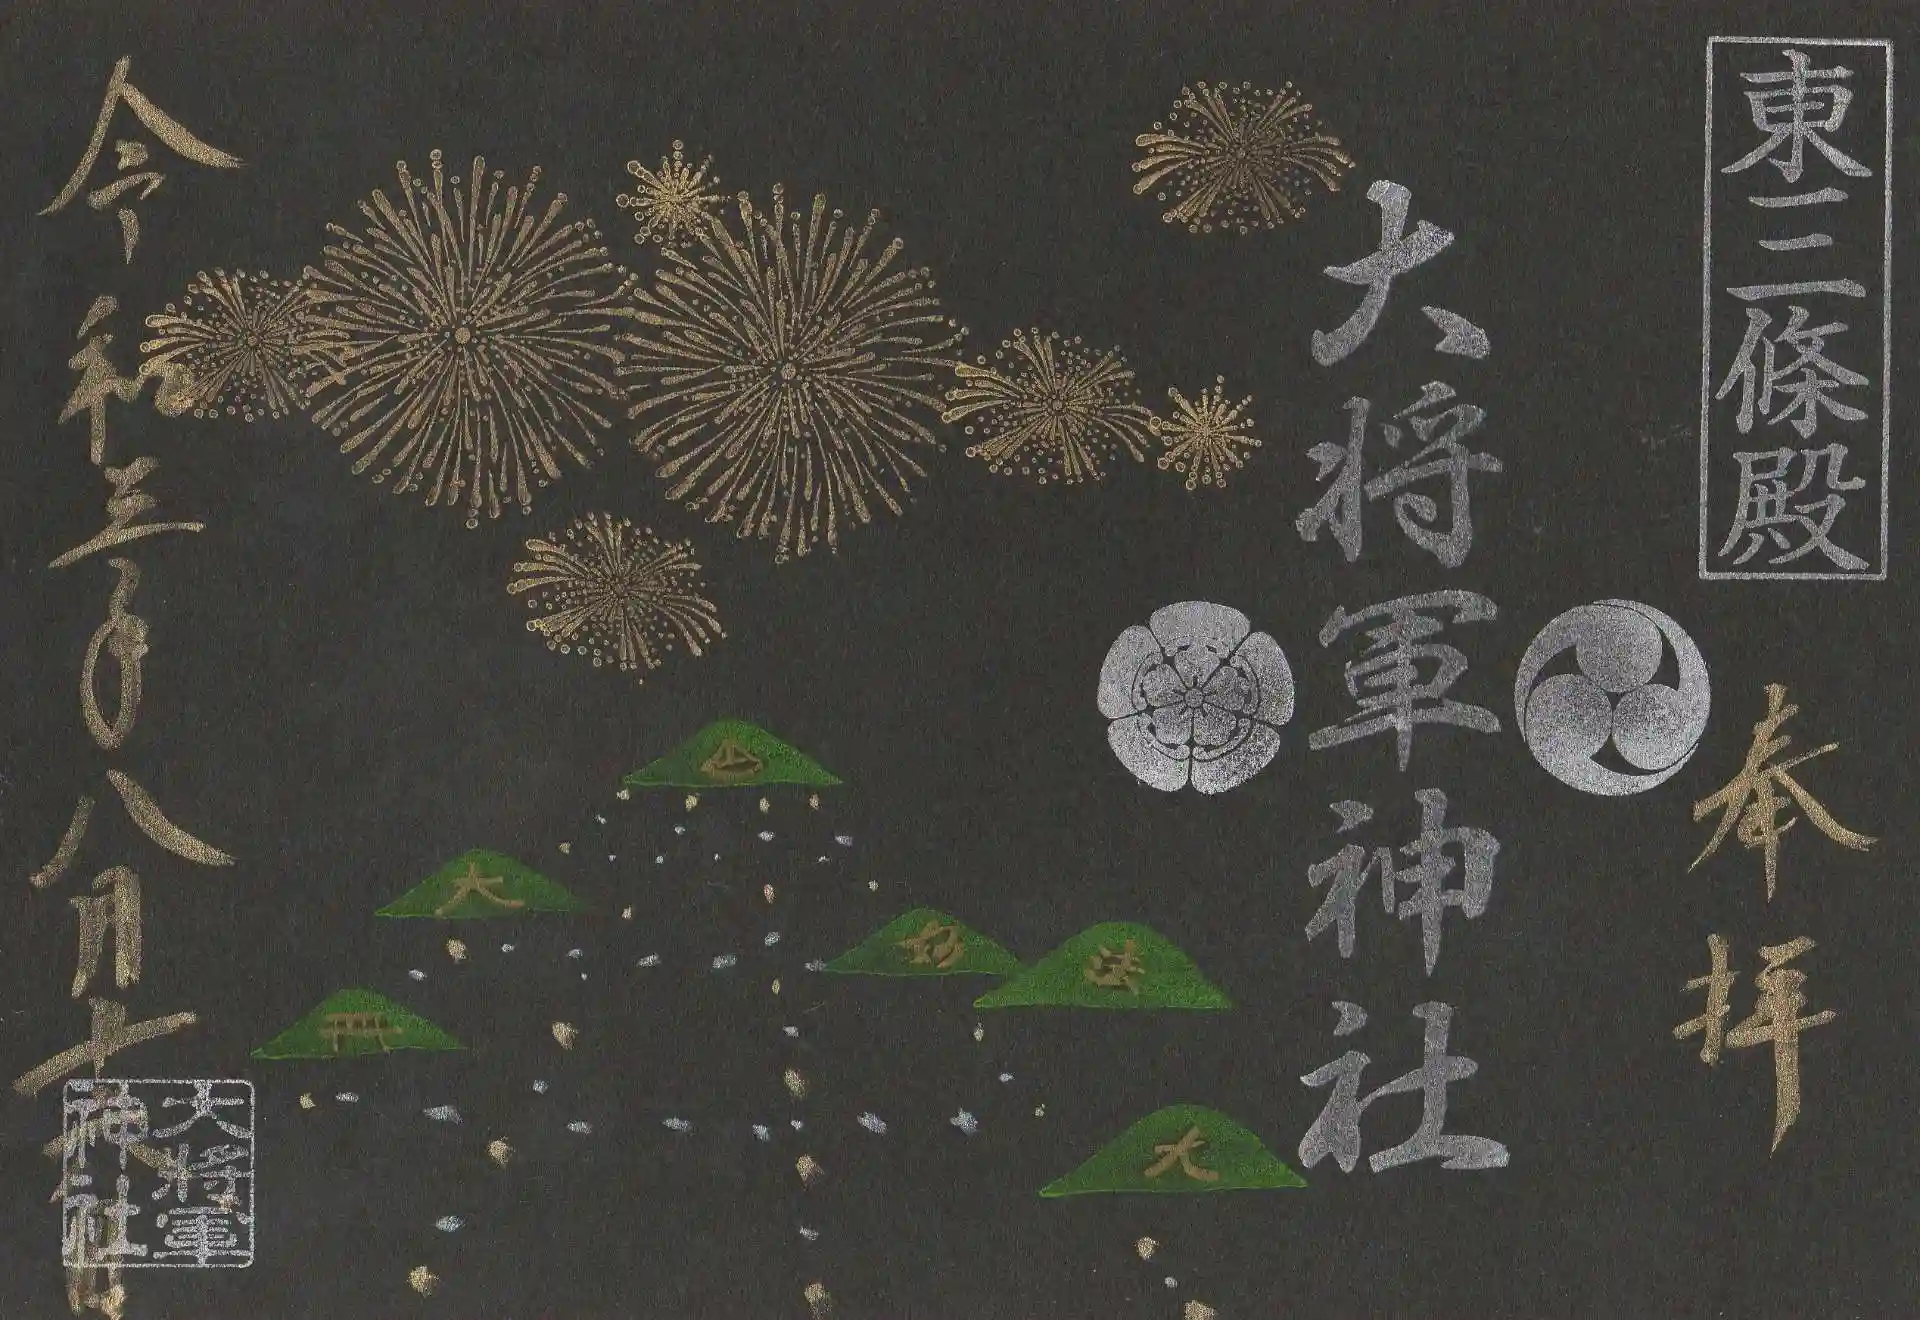 東三條殿
奉拝
大将軍神社
大
妙
法
大
令和三年八月十六日
大将軍
神社